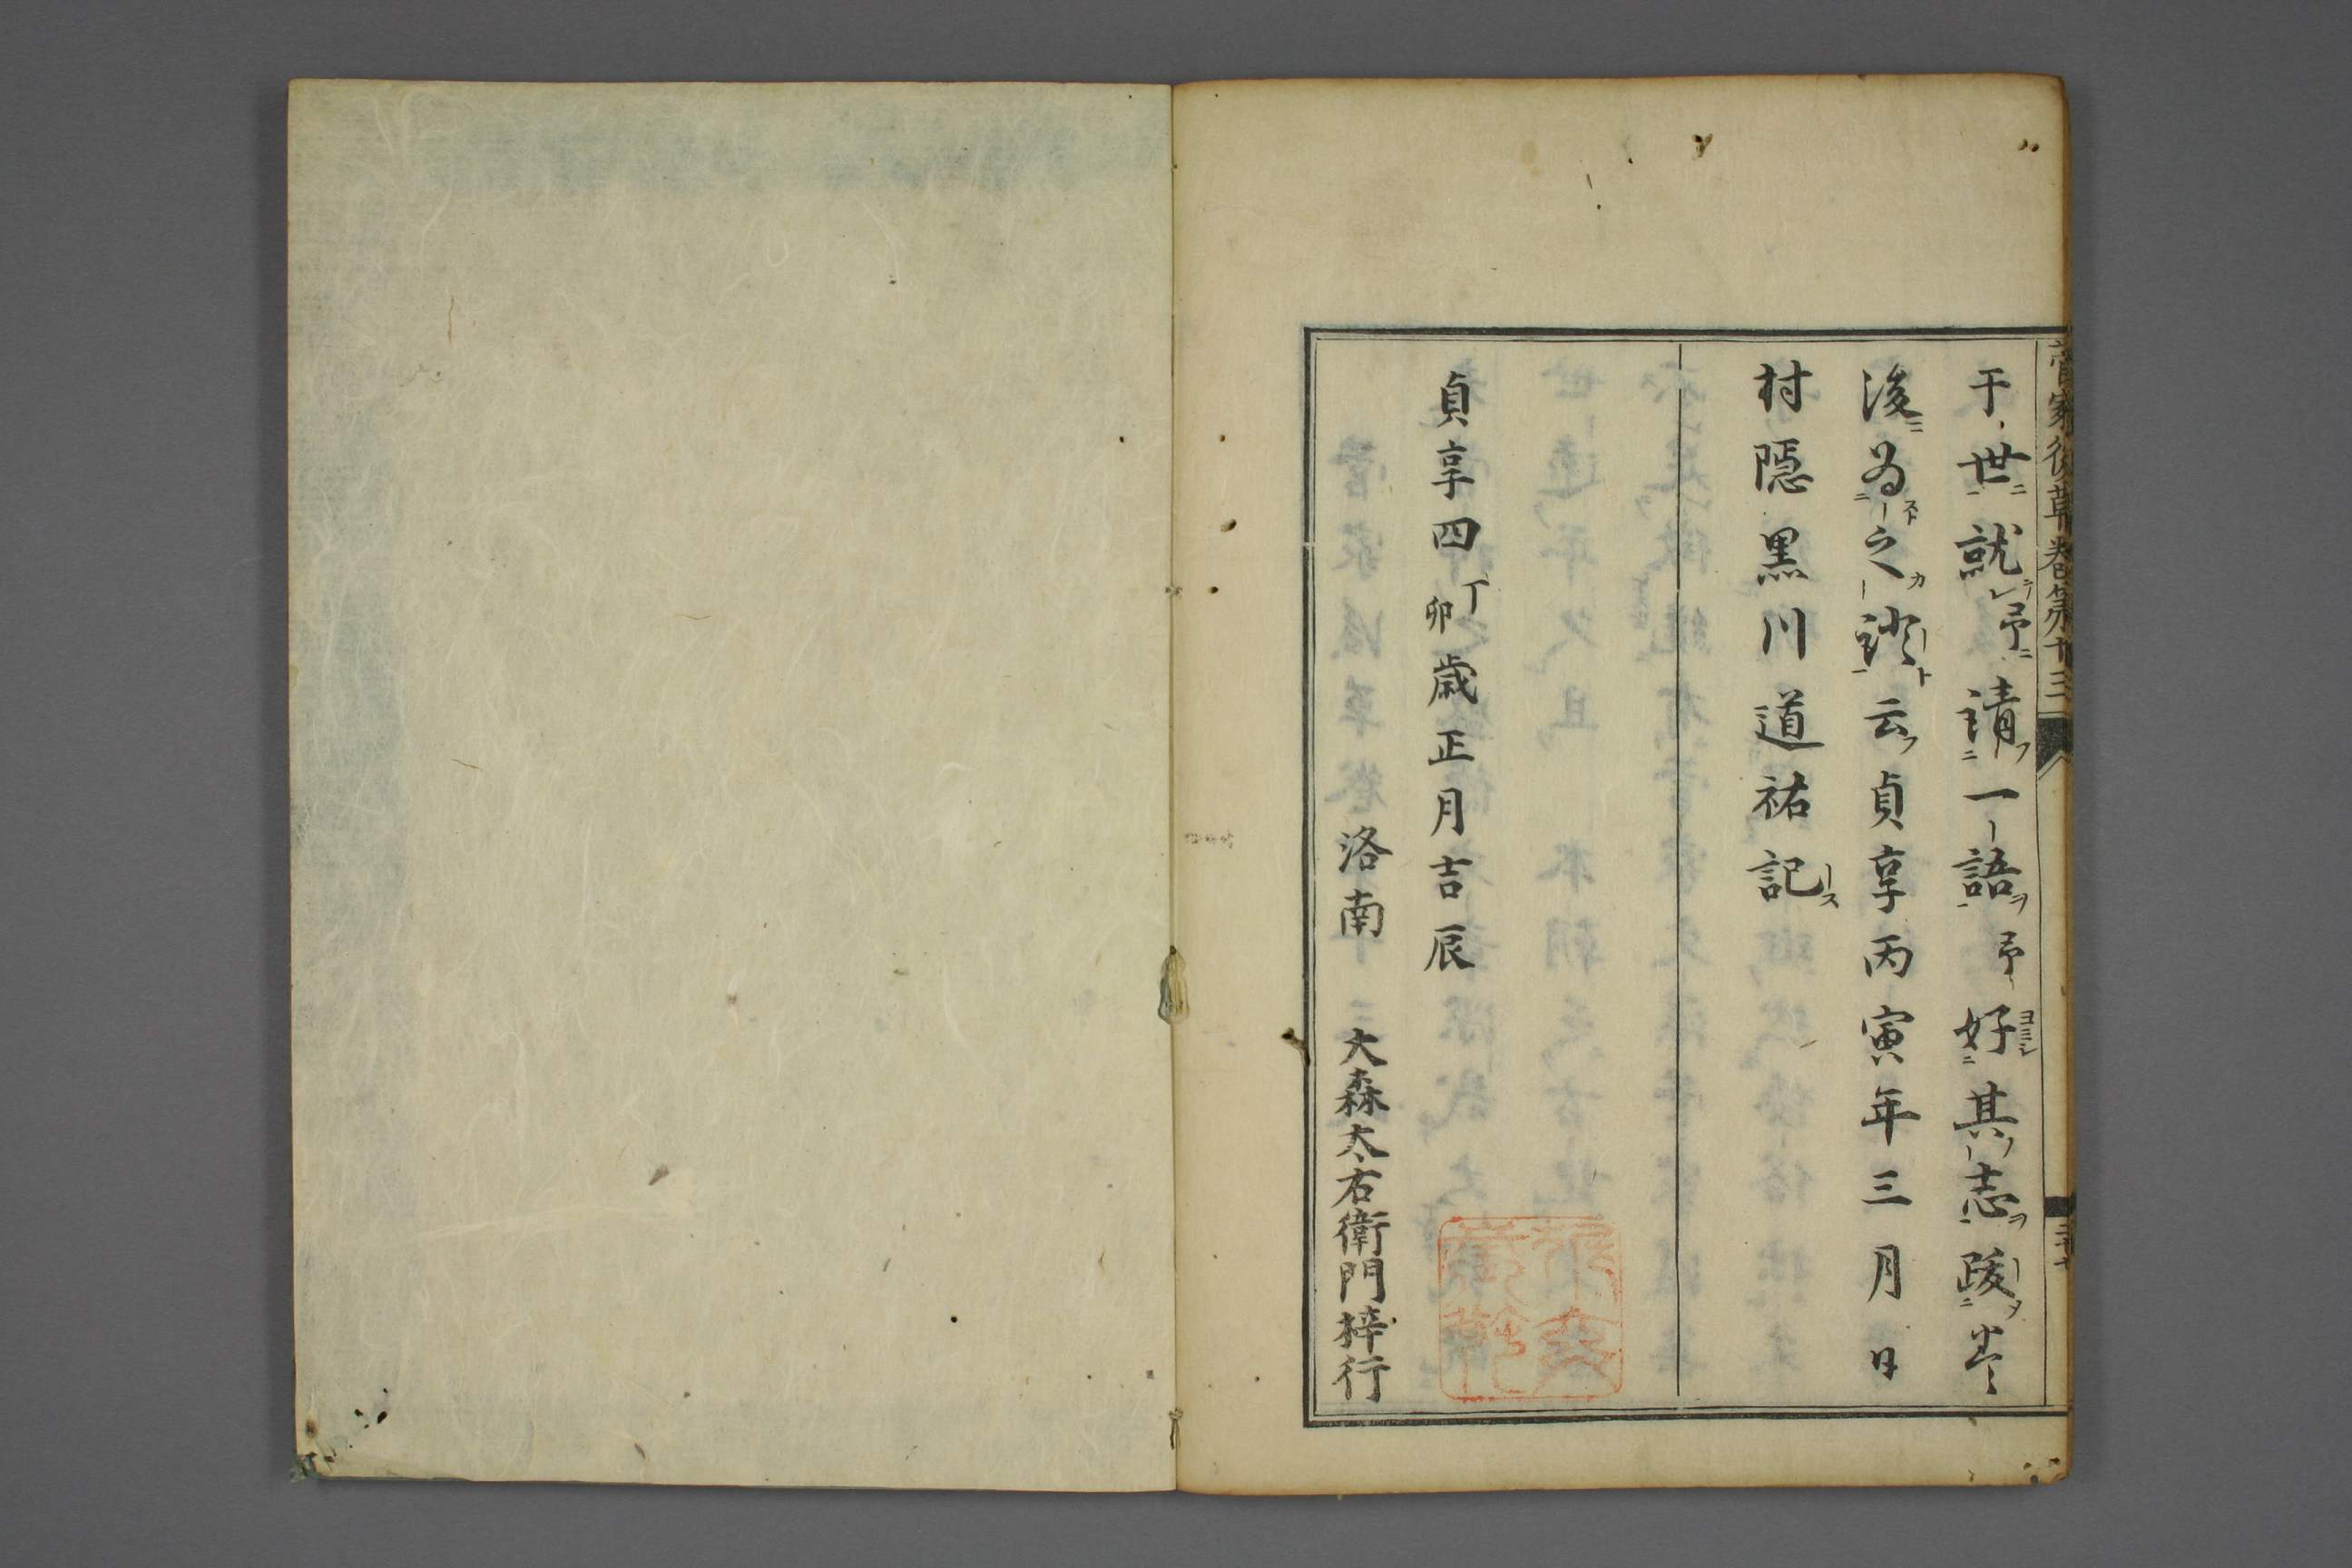 菅家後草卷第十三
于世就予請一語予好其志跋卷
後為之證云貞享丙寅年三月日
村隠黒川道祐記
貞享四丁卯歳正月吉辰
洛南 大森太右衛門梓行